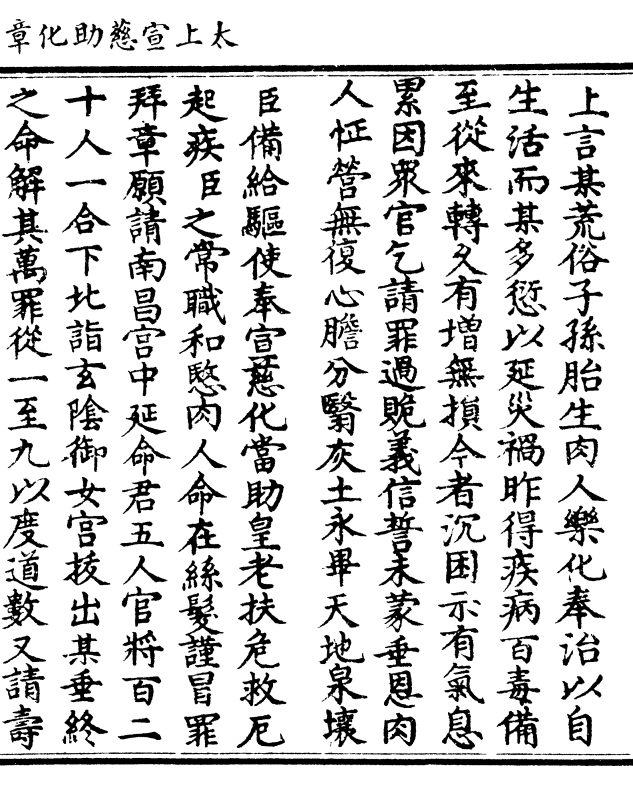 太上宣慈助化章
上言某荒俗子孫胎生肉人樂化奉治以自
生活而某多愆以延災禍昨得疾病百毒備
至從來轉久有增無損今者沉困示有氣息
累因眾官乞請罪過貺義信誓未蒙垂恩肉
人怔營無復心膽分翳灰土永畢天地泉壤
臣備給驅使奉宣慈化當助皇老扶危救厄
起疾臣之常職和愍肉人命在絲髮謹冒罪
拜章願請南昌宮中延命君五人官將百二
十人一合下北詣玄陰御女宮拔出某垂終
之命解其萬罪從一至九以度道數又請壽